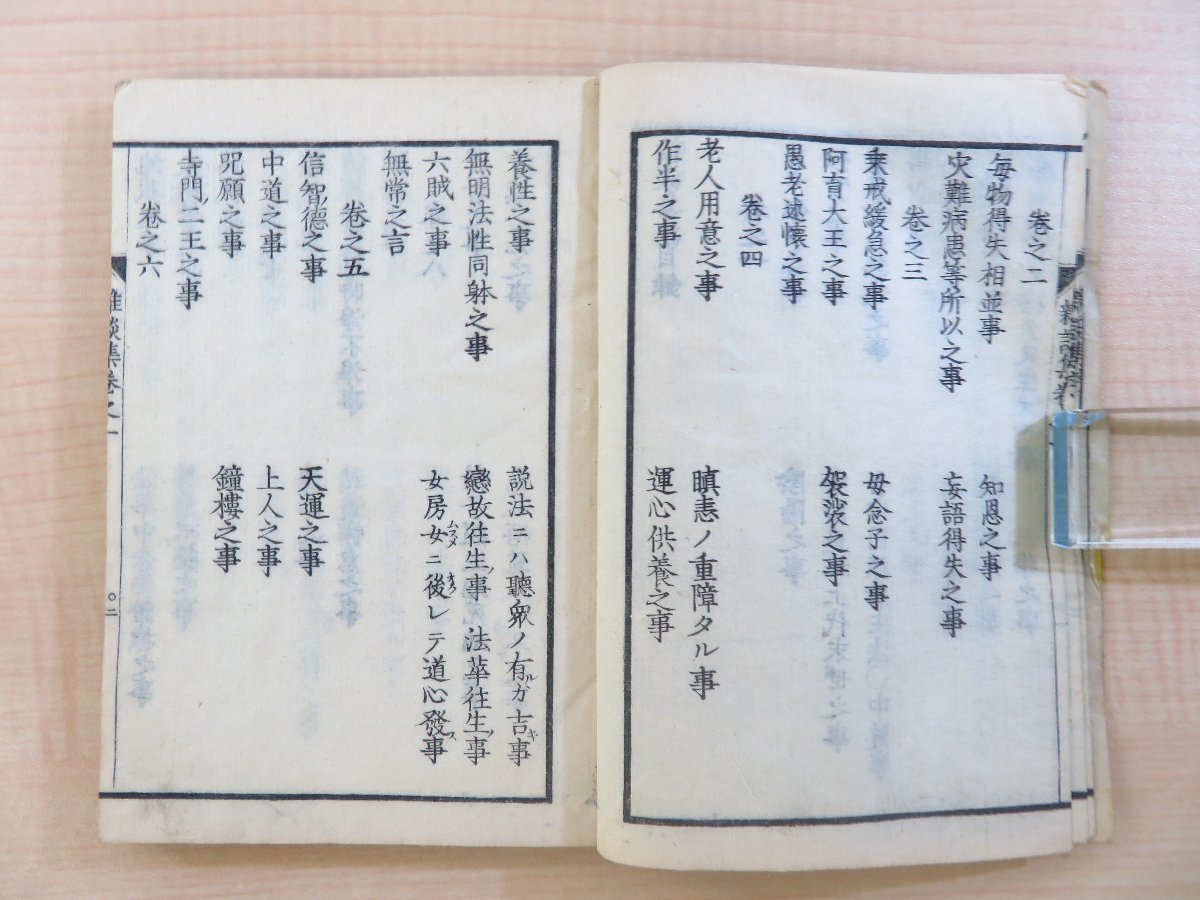 卷之二
毎物得失相並事
知恩之事
灾難病患等所以之事
妄語得失之事
卷之三
乗戒緩急之事
母念子之事
阿育大王之事
袈裟之事
愚老述懐之事
卷之四
老人用意之事
瞋恚ノ重障タル事
作半之事
運心供養之事
養性之事
説法ニハ聽衆ノ有ルガ吉キ事
無明法性同躰之事
戀故往生ノ事 法華往生ノ事
六賊之事
女房女ムスメニ後オクレテ道心發ス事
無常之言
卷之五
信智ノ德之事
天運之事
中道之事
上人之事
咒願之事
鐘樓之事
寺門ノ二王之事
卷之六
雜談集卷之一
〇二